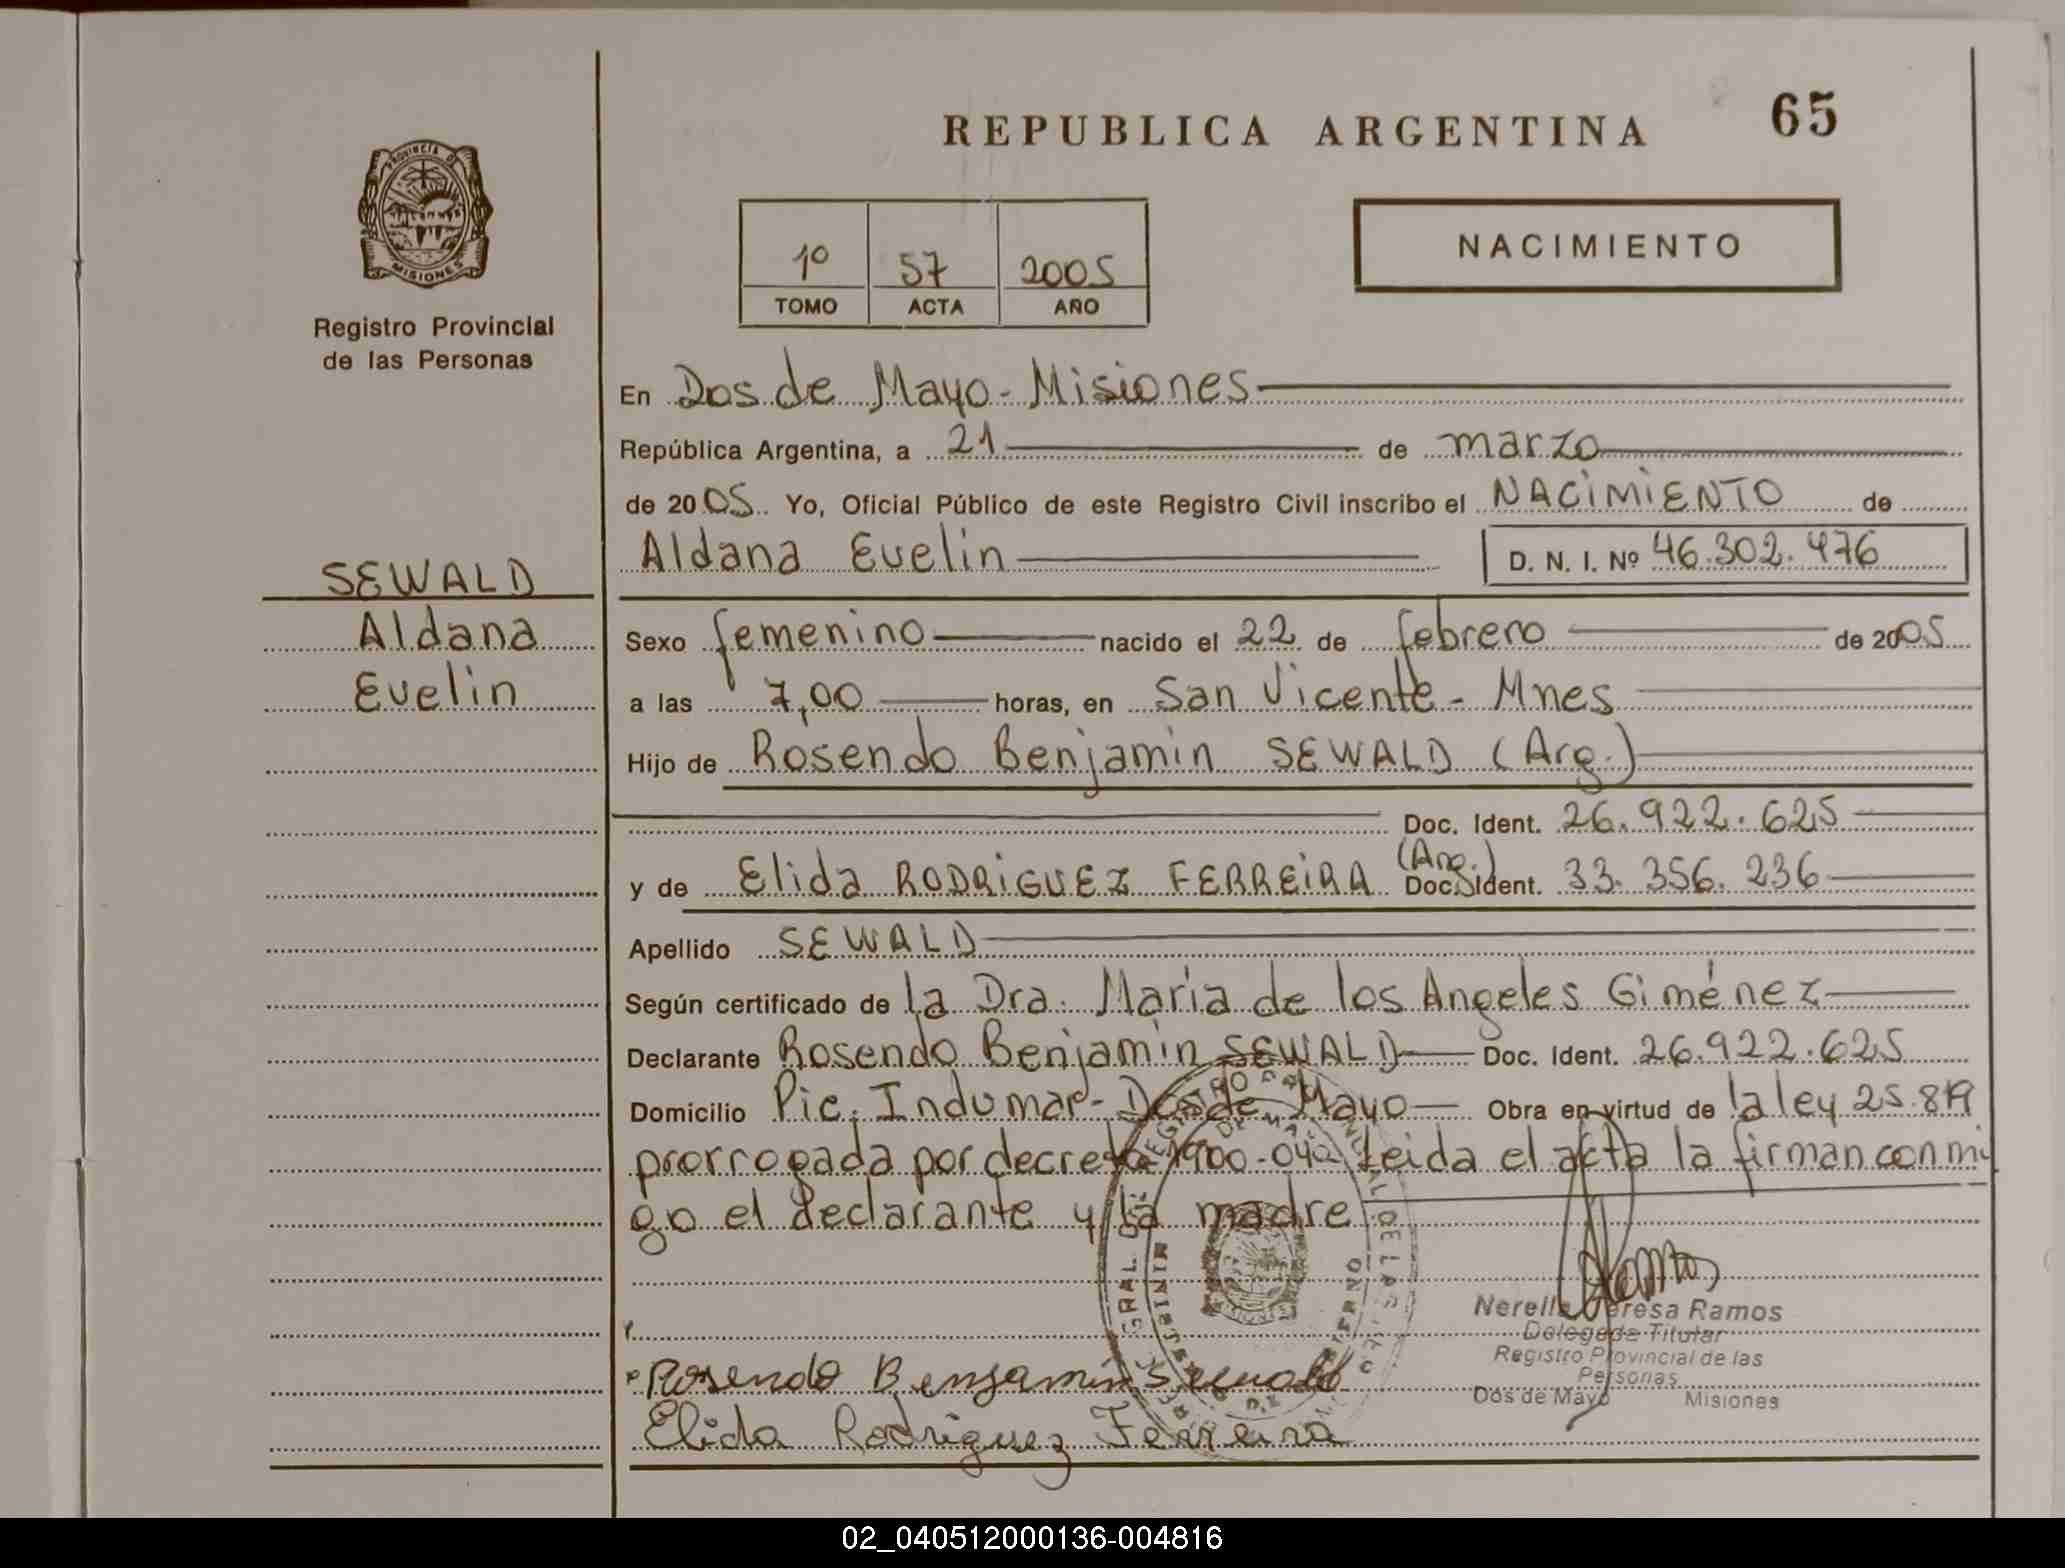 REPUBLICA ARGENTINA 65
PROVINCIA DE
MISIONES
Registro Provincial
de las Personas
1º 57 2005
TOMO ACTA AÑO
NACIMIENTO
En Dos de Mayo - Misiones
República Argentina, a 21 de marzo
de 2005 Yo, Oficial Público de este Registro Civil inscribo el NACIMIENTO de
Aldana Evelin D. N. I. Nº 46.302.476
SEWALD
Aldana
Evelin
Sexo femenino nacido el 22 de febrero de 2005
a las 7,00 horas, en San Vicente - Mnes
Hijo de Rosendo Benjamin SEWALD (Arg.)
Doc. Ident. 26.922.625
y de Elida RODRIGUEZ FERREIRA (Arg.) Doc. Ident. 33.356.236
Apellido SEWALD
Según certificado de la Dra. Maria de los Angeles Giménez
Declarante Rosendo Benjamin SEWALD Doc. Ident. 26.922.625
Domicilio Pic. Indumar - Dos de Mayo Obra en virtud de la ley 25.819
prorrogada por decreto 1900-04 Leida el acta la firman conmi
go el declarante y la madre
Nerella Teresa Ramos
Delegada Titular
Registro Provincial de las
Personas
Dos de Mayo Misiones
Rosendo Benjamin Sewald
Elida Rodriguez Ferreira
02_040512000136-004816